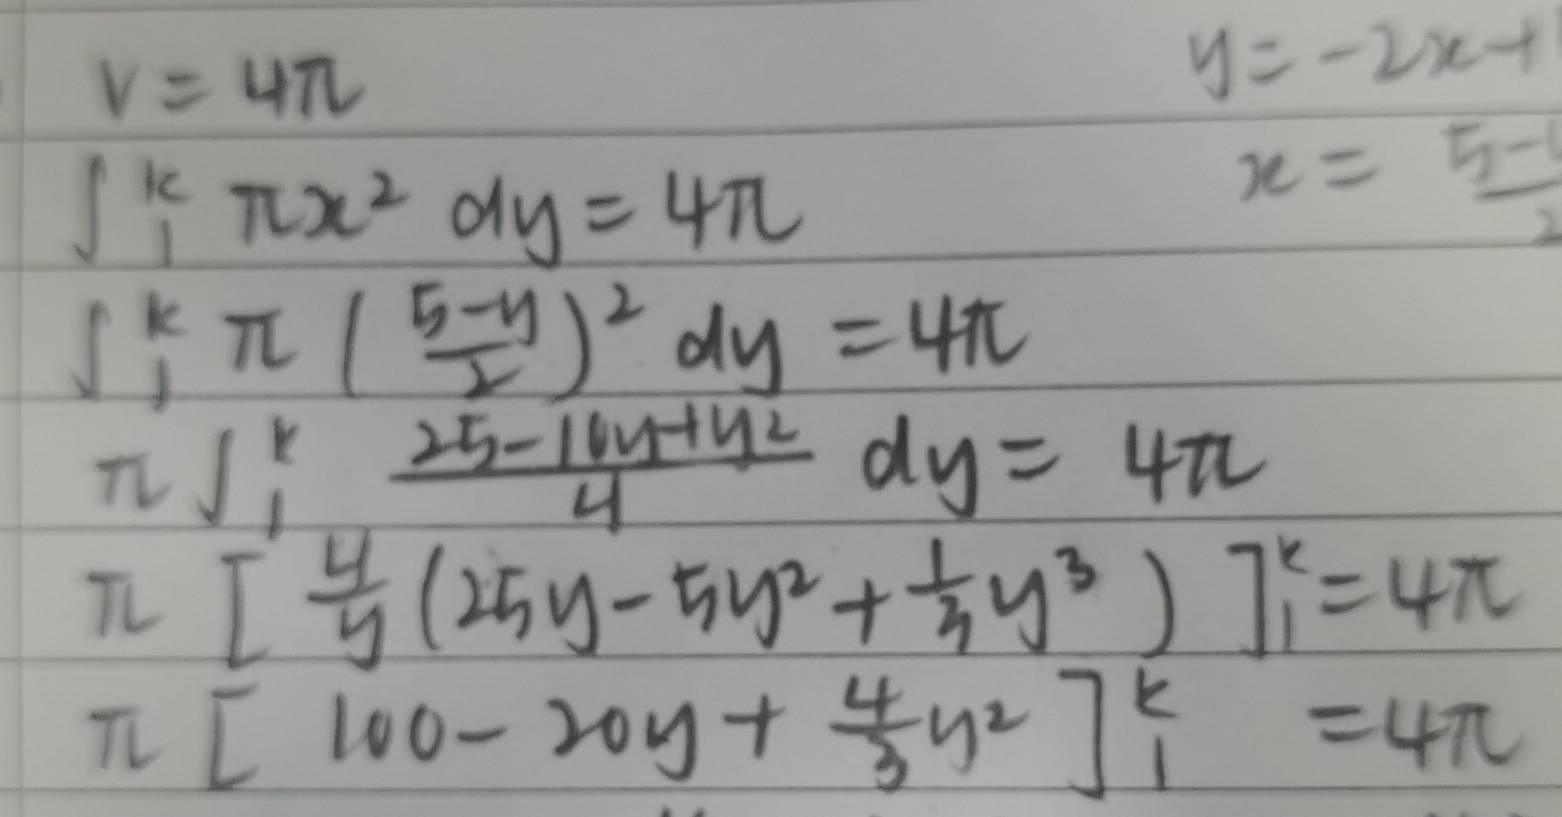 V = 4π
y = -2x+
∫₁ᵏ πx² dy = 4π
x = 5-
2
∫₁ᵏ π ( (5-y)/2 )² dy = 4π
π ∫₁ᵏ (25-10y+y²)/4 dy = 4π
π [ 4/y (25y - 5y² + 1/3 y³ ) ]₁ᵏ = 4π
π [ 100 - 20y + 4/3 y² ]₁ᵏ = 4π